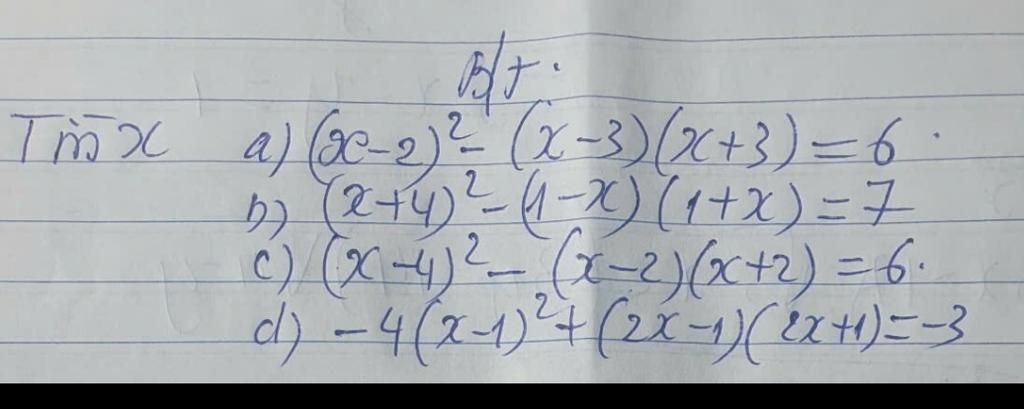 B/T.
Tìm x a) (x-2)² - (x-3)(x+3) = 6.
b) (x+4)² - (1-x)(1+x) = 7
c) (x-4)² - (x-2)(x+2) = 6.
d) -4(x-1)² + (2x-1)(2x+1) = -3